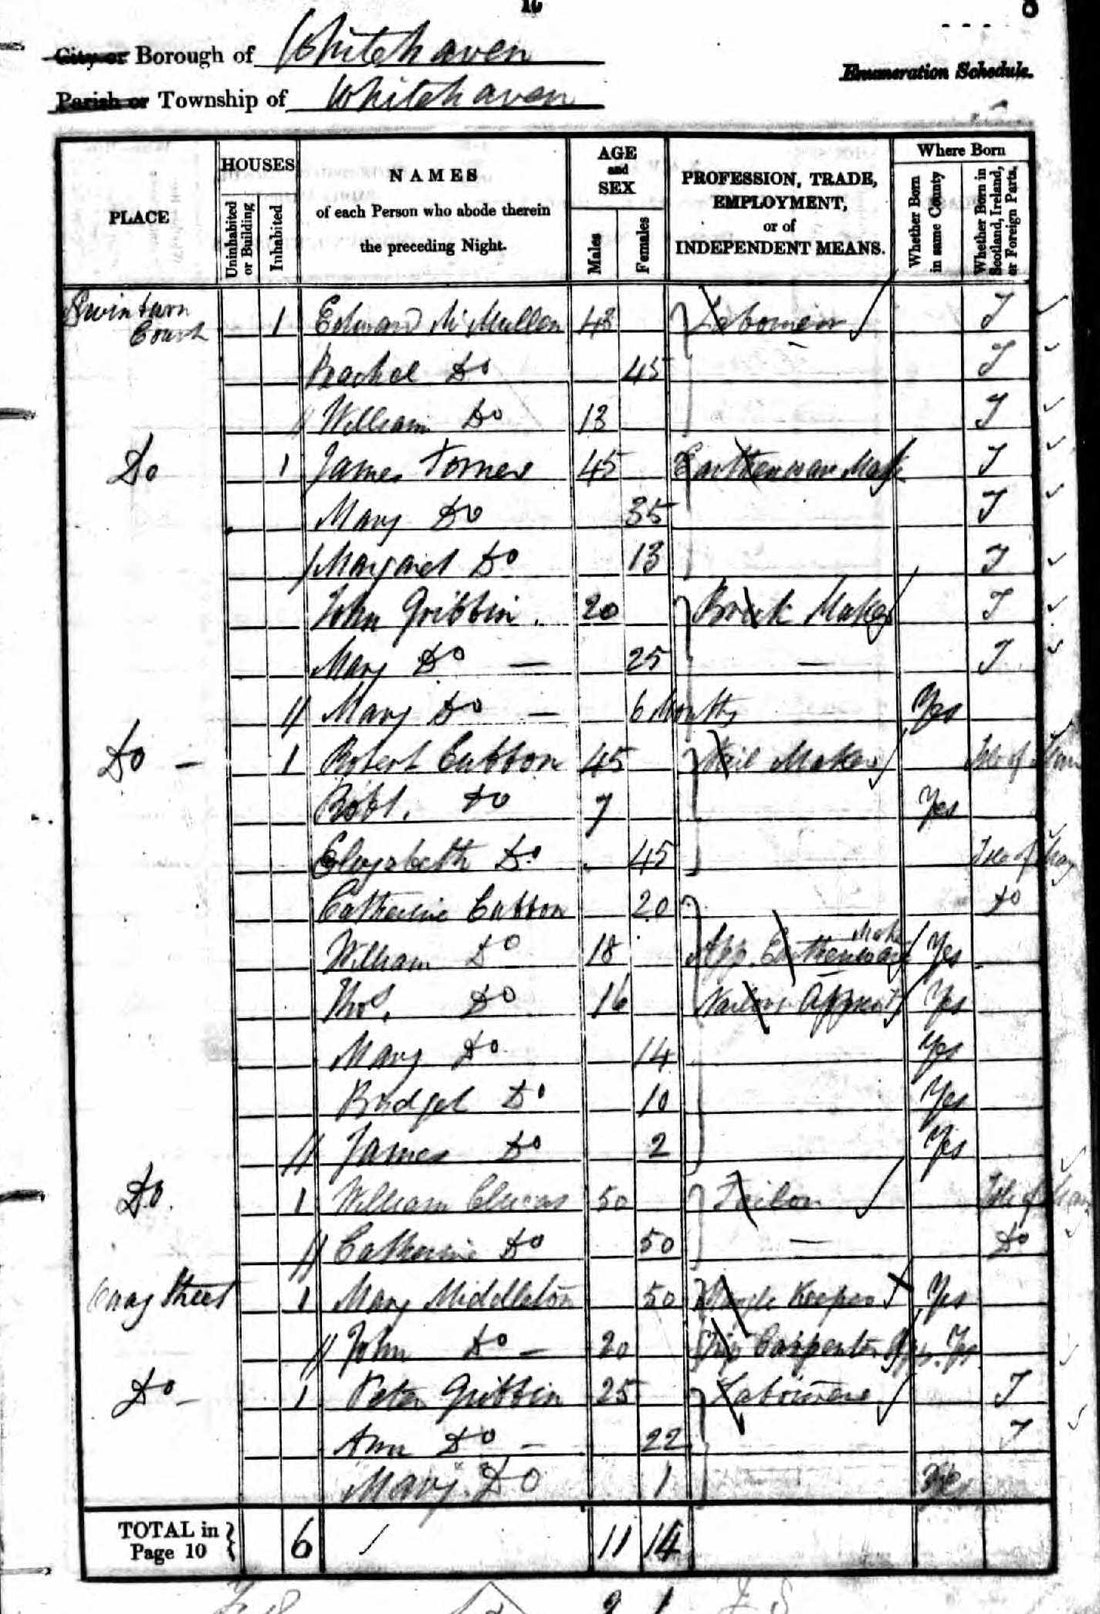 8
City or Borough of Whitehaven
Enumeration Schedule.
Parish or Township of Whitehaven
PLACE
HOUSES
Uninhabited or Building
Inhabited
NAMES
of each Person who abode therein
the preceding Night.
AGE and SEX
Males
Females
PROFESSION, TRADE, EMPLOYMENT, or of INDEPENDENT MEANS.
Where Born
Whether Born in same County
Whether Born in Scotland, Ireland, or Foreign Parts.
Court 1 Edward McMullen 48 Labourer I
Rachel Do 45 I
William Do 13 I
Do 1 James 45 Earthenware Mak I
Mary Do 35 I
Margaret Do 13 I
John Gribbin 20 Brick Maker I
Mary Do — 25 — I
Mary Do — 6 Months Yes
Do — 1 Robert Cubbon 45 Nail Maker Isle of Man
Robt. Do 7 Yes
Elizabeth Do 45 Isle of Man
Catherine Cubbon 20 Do
William Do 18 App. Earthenware Mak Yes
Thos. Do 16 Nailors Yes
Mary Do 14 Yes
Bridget Do 10 Yes
James Do 2 Yes
Do. 1 William Clucas 50 Tailor Isle of Man
Catherine Do 50 — Do
Street 1 Mary Middleton 50 Keeper Yes
John Do — 20 Ship Carpenter App. Yes
Do — 1 Peter Gribbin 25 Labourer I
Ann Do — 22 I
Mary Do 1 Yes
TOTAL in Page 10 } 6 11 14